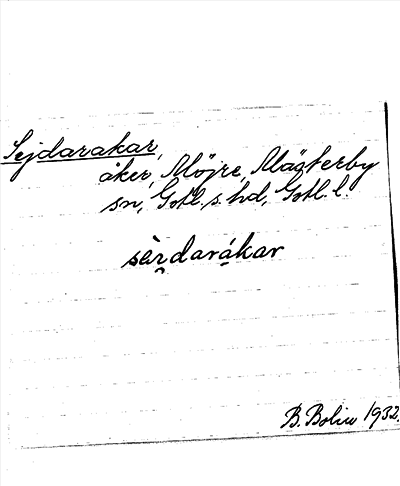 Sejdarakar,
åker, Möjre, Mästerby
sn, Gotl. s. hd, Gotl. l.
sèr̯darákar
B. Bolin 1932.